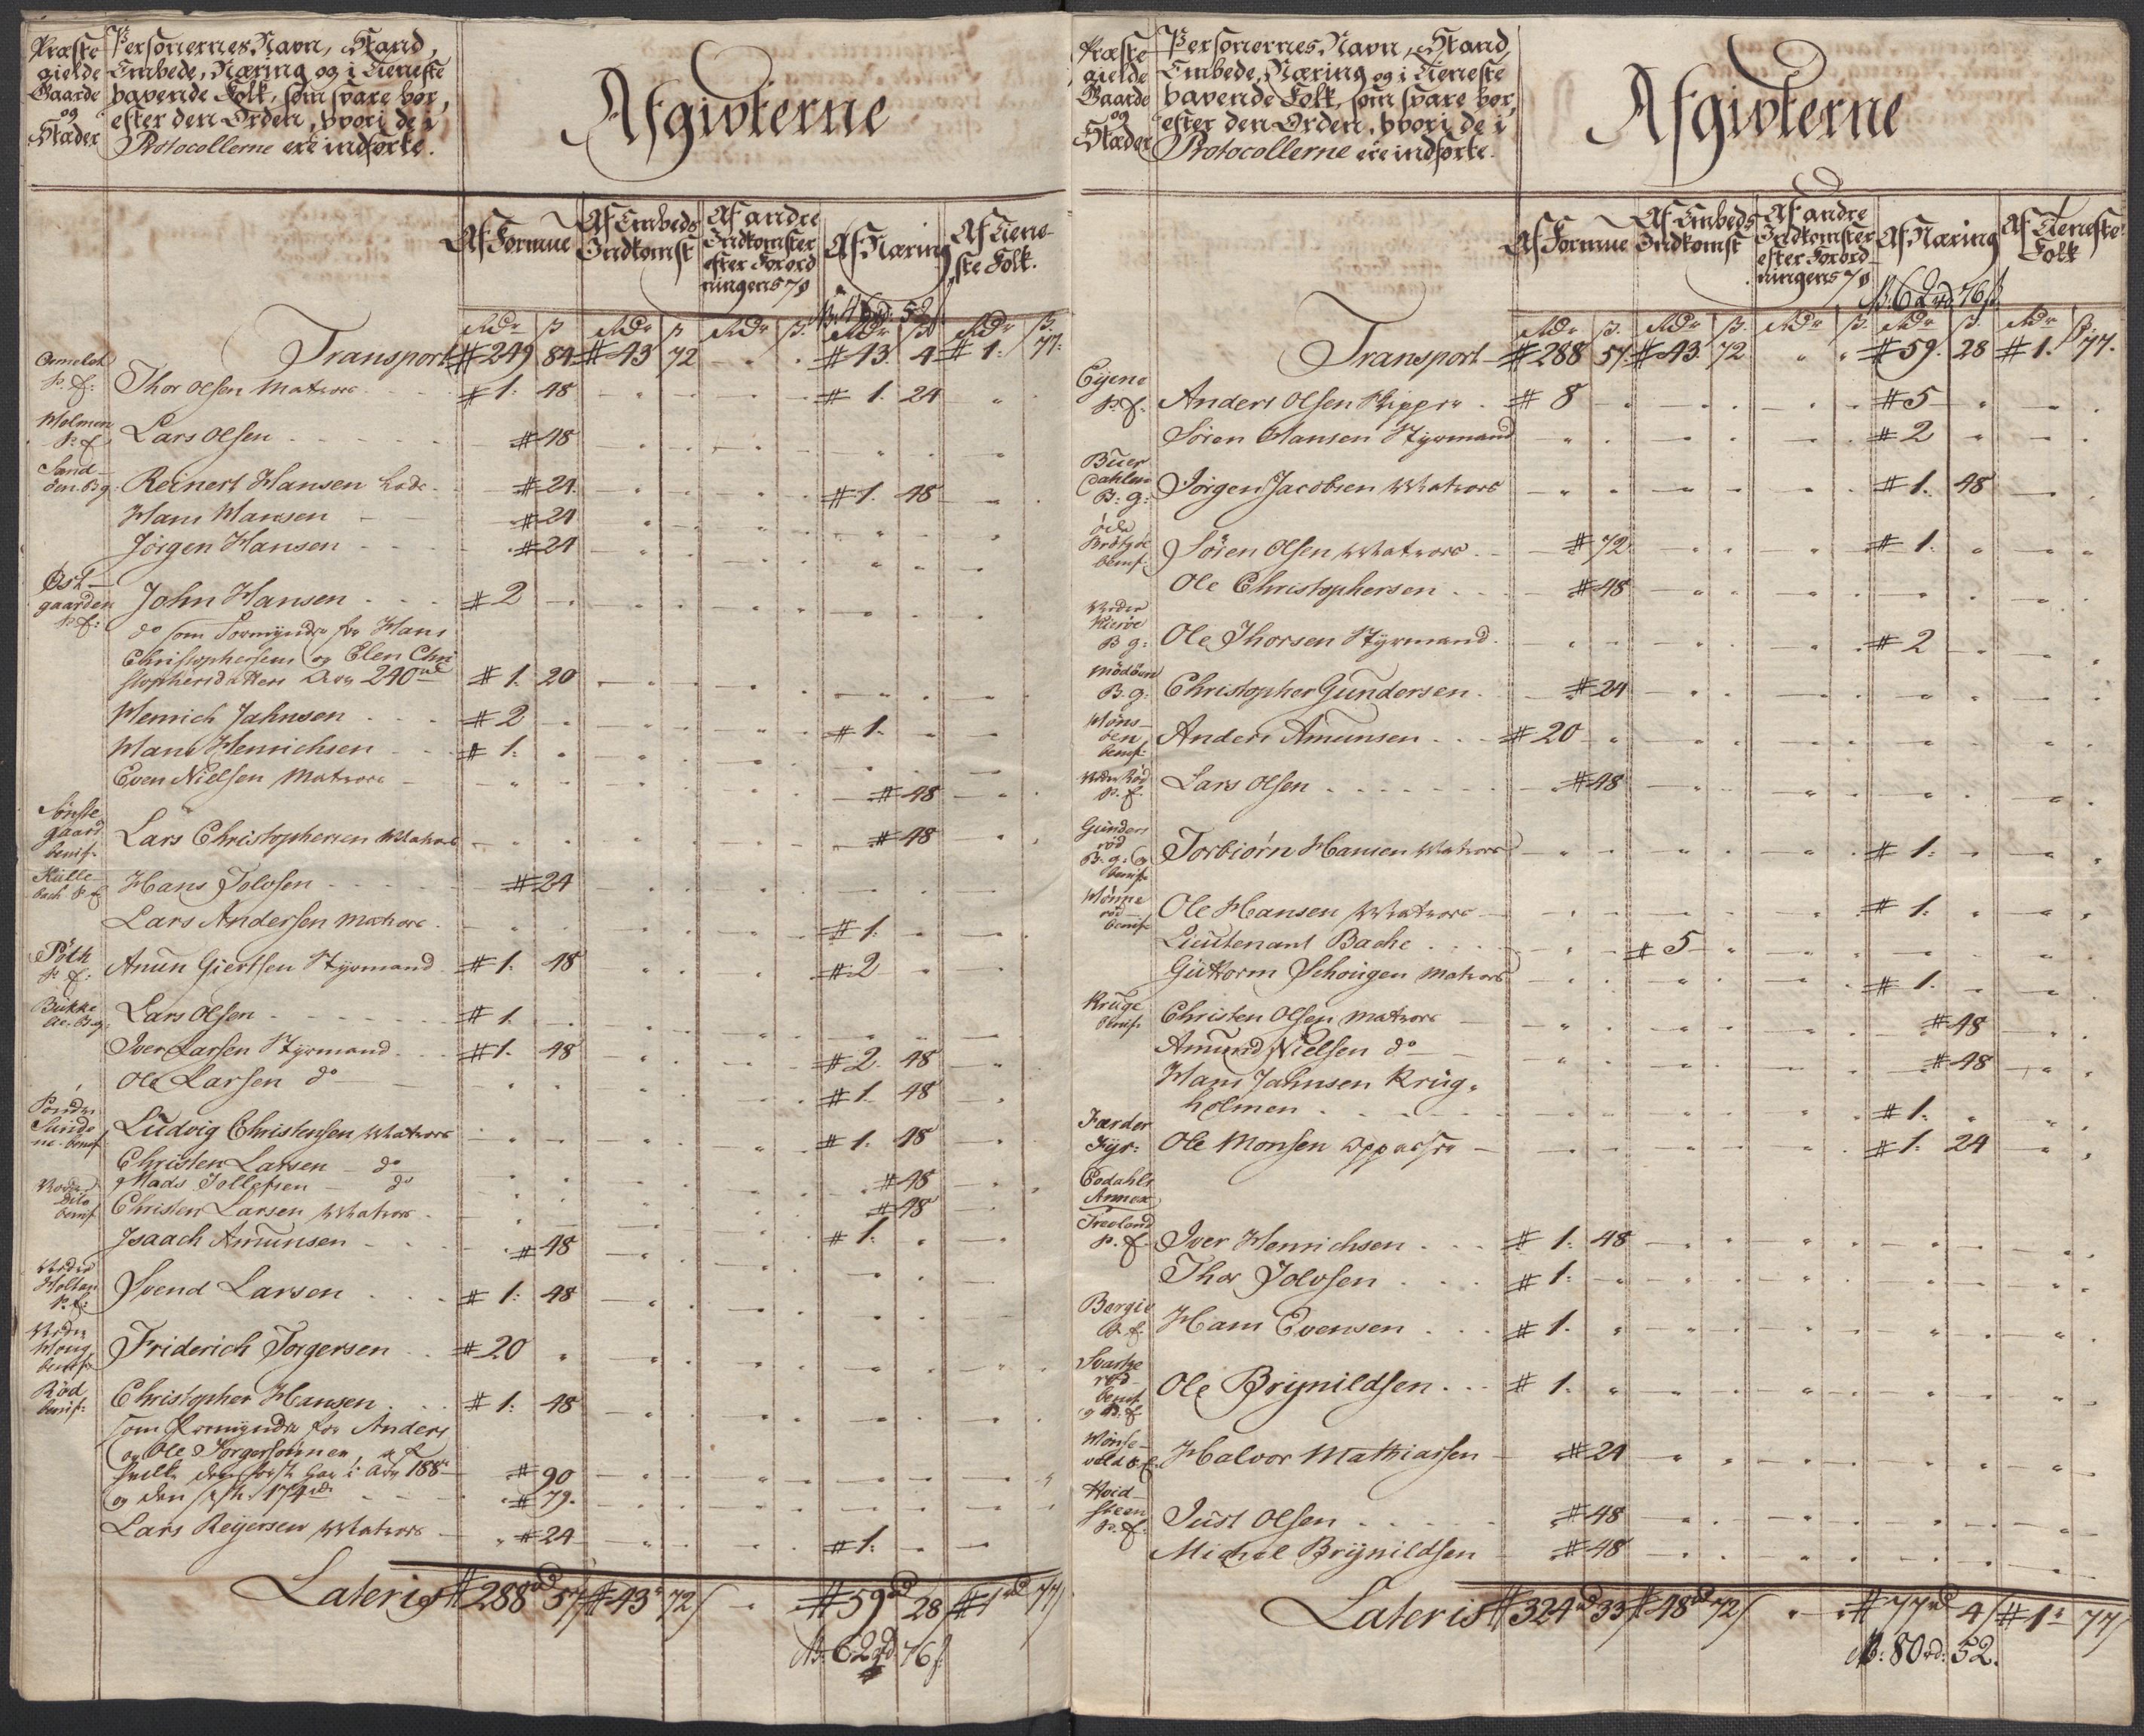 Præste
gielde
Gaarde
og
Stæder
Personernes Navn, Stand,
Embede, Næring og i Tieneste
havende Folk, som svare hver,
efter den Orden, hvori de i
Protocollerne ere indførte.
Afgivterne
Af Formue
Af Embeds
Indkomst
Af andre
Indkomster
efter Forord
ningens 7 §
Af Næring
Af Tiene-
ste Folk.
Rdr ß Rdr ß Rdr ß. Rdr ß Rdr ß.
Transport # 249 84 # 43 72 # 43. 4 # 1: 77:
P. f: Thor Olsen Matros # 1. 48 # 1. 24
Holmen
P. f Lars Olsen # 48
Sand-
öen B g. Reinert Hansen Lods # 24. # 1. 48
Hans Hansen # 24
Jörgen Hansen # 24
Øst-
gaarden
P. f: John Hansen # 2
do som Formynder for Hans
Christophersen og Elen Chri
stophersdatter Arv 240 rd # 1. 20
Henrich Jahnsen # 2 # 1.
Hans Henrichsen # 1.
Even Nielsen Matros # 48
Sönste
gaard
benif. Lars Christophersen Matros # 48
Kulle
bach P. f Hans Jolvsen # 24
Lars Andersen Matros # 1.
P. f: Anun Giertsen Styrmand # 1. 48 # 2
Bukke
B. g: Lars Olsen # 1.
Iver Larsen Styrmand # 1. 48 # 2. 48
Ole Larsen do # 1. 48
Söndre
Sunde
benif Ludvig Christensen Matros # 1. 48
Christen Larsen do # 48
Mads Tollefsen do # 48
benif Christen Larsen Matros # 1.
Isaach Amunsen # 48
Neder
Holtan
P. f: Svend Larsen # 1: 48
Neder
Houg
benif Friderich Torgersen # 20
Rød
benif: Christopher Hansen # 1: 48
som Formynder for Anders
og Ole Torgersönner, af
hvilke den første har i Arv 188 # 90
og den sidste 174 rd # 79.
Lars Reyersen Matros # 24 # 1.
Lateris # 288 rd 57 # 43 72 # 59 rd 28 # 1 rd 77
62 rd 76
Præste
gielde
Gaarde
og
Stæder
Personernes Navn, Stand,
Embede, Næring og i Tieneste
havende Folk, som svare hver,
efter den Orden, hvori de i
Protocollerne ere indførte.
Afgivterne
Af Formue
Af Embeds
Indkomst
Af andre
Indkomster
efter Forord
ningens 7 §
Af Næring
Af Tieneste
Folk
62 rd 76 ß
Rdr ß. Rdr ß. Rdr ß. Rdr ß. Rdr ß.
Transport # 288 57. # 43. 72 # 59. 28 # 1. 77.
Eyene
P. f. Anders Olsen Skipper # 8 # 5
Sören Hansen Styrmand # 2
Buer
dahlen
B: g: Jörgen Jacobsen Matros # 1. 48
benif: Sören Olsen Matros # 72 # 1.
Ole Christophersen # 48
Neder
Kieröe
B g: Ole Thorsen Styrmand # 2
B. g: Christopher Gundersen # 24
Höns-
öen
benif: Anders Amunsen # 20
Neder Rød
P. f. Lars Olsen # 48
Gunders
rød
B. g: og
benif. Torbiørn Hansen Matros # 1:
Hönne
rød
benif Ole Hansen Matros # 1.
Lieutenant Bache # 5
Guttorm Schougen Matros # 1.
Kruge
benif: Christen Olsen Matros # 48
Amund Nielsen do # 48
Hans Jahnsen Krug-
holmen # 1.
Færder
Fyr: Ole Monsen Oppasser # 1. 24
Eodahls
Annex
Freeland
P. f. Iver Henrichsen # 1: 48
Thor Jolvsen # 1:
Bergie
P. f. Hans Evensen # 1.
Svarte
rød
benif
og B. f. Ole Brynildsen # 1.
Halvor Mathiassen # 24
Hvid-
steen
P. f. Just Olsen # 48
Michel Brynildsen # 48
Lateris # 324 rd 33 # 48 rd 72 # 77 rd 4 # 1 77
80 rd: 52.